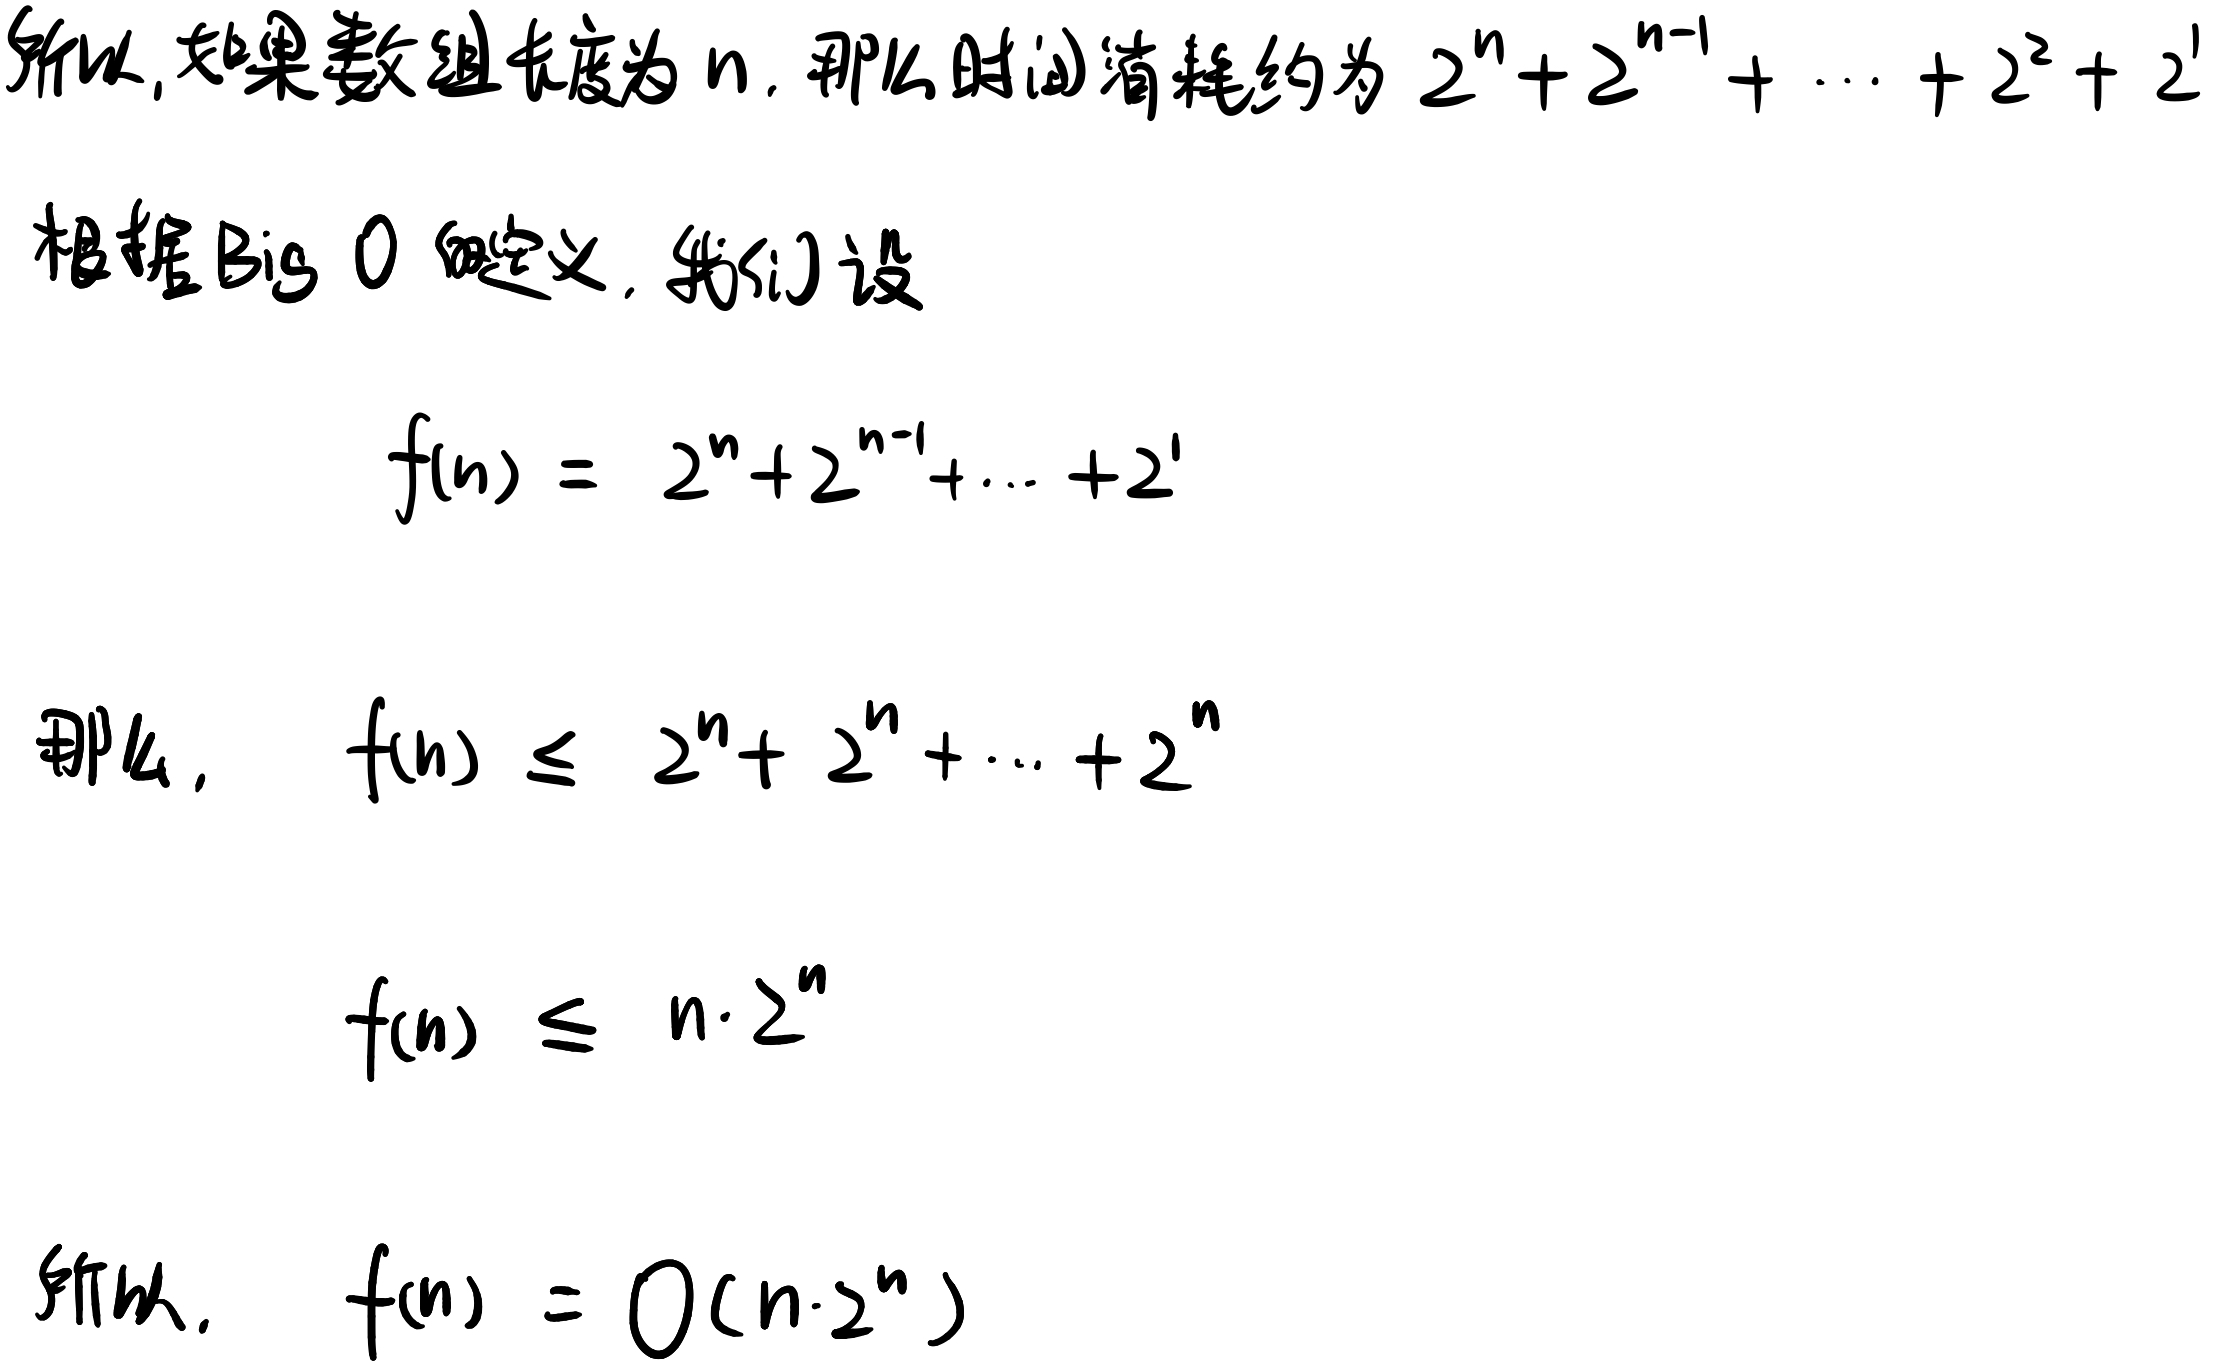 所以,如果数组长度为 n, 那么时间消耗约为 2ⁿ + 2ⁿ⁻¹ + ⋯ + 2² + 2¹
根据 Big O 的定义, 我们设
f(n) = 2ⁿ + 2ⁿ⁻¹ + ⋯ + 2¹
那么, f(n) ≤ 2ⁿ + 2ⁿ + ⋯ + 2ⁿ
f(n) ≤ n·2ⁿ
所以, f(n) = O(n·2ⁿ)